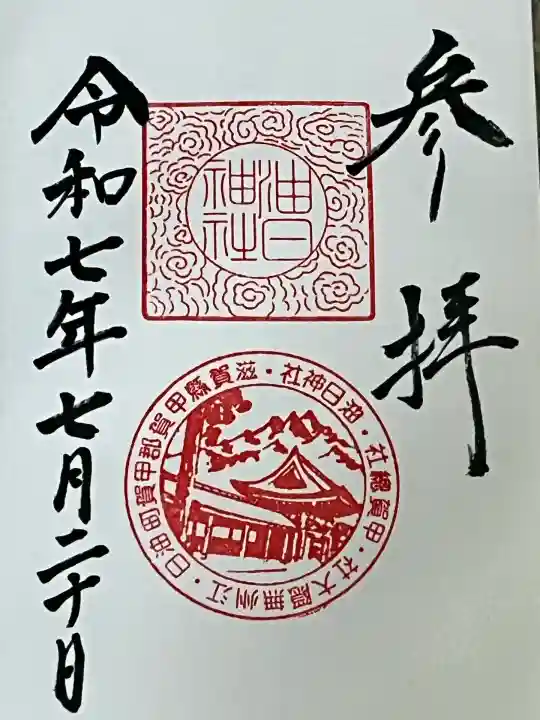 参拝
油日
神社
油日神社・滋賀縣甲賀郡甲賀町油日・江州無隅大社・甲賀總社・
令和七年七月二十日